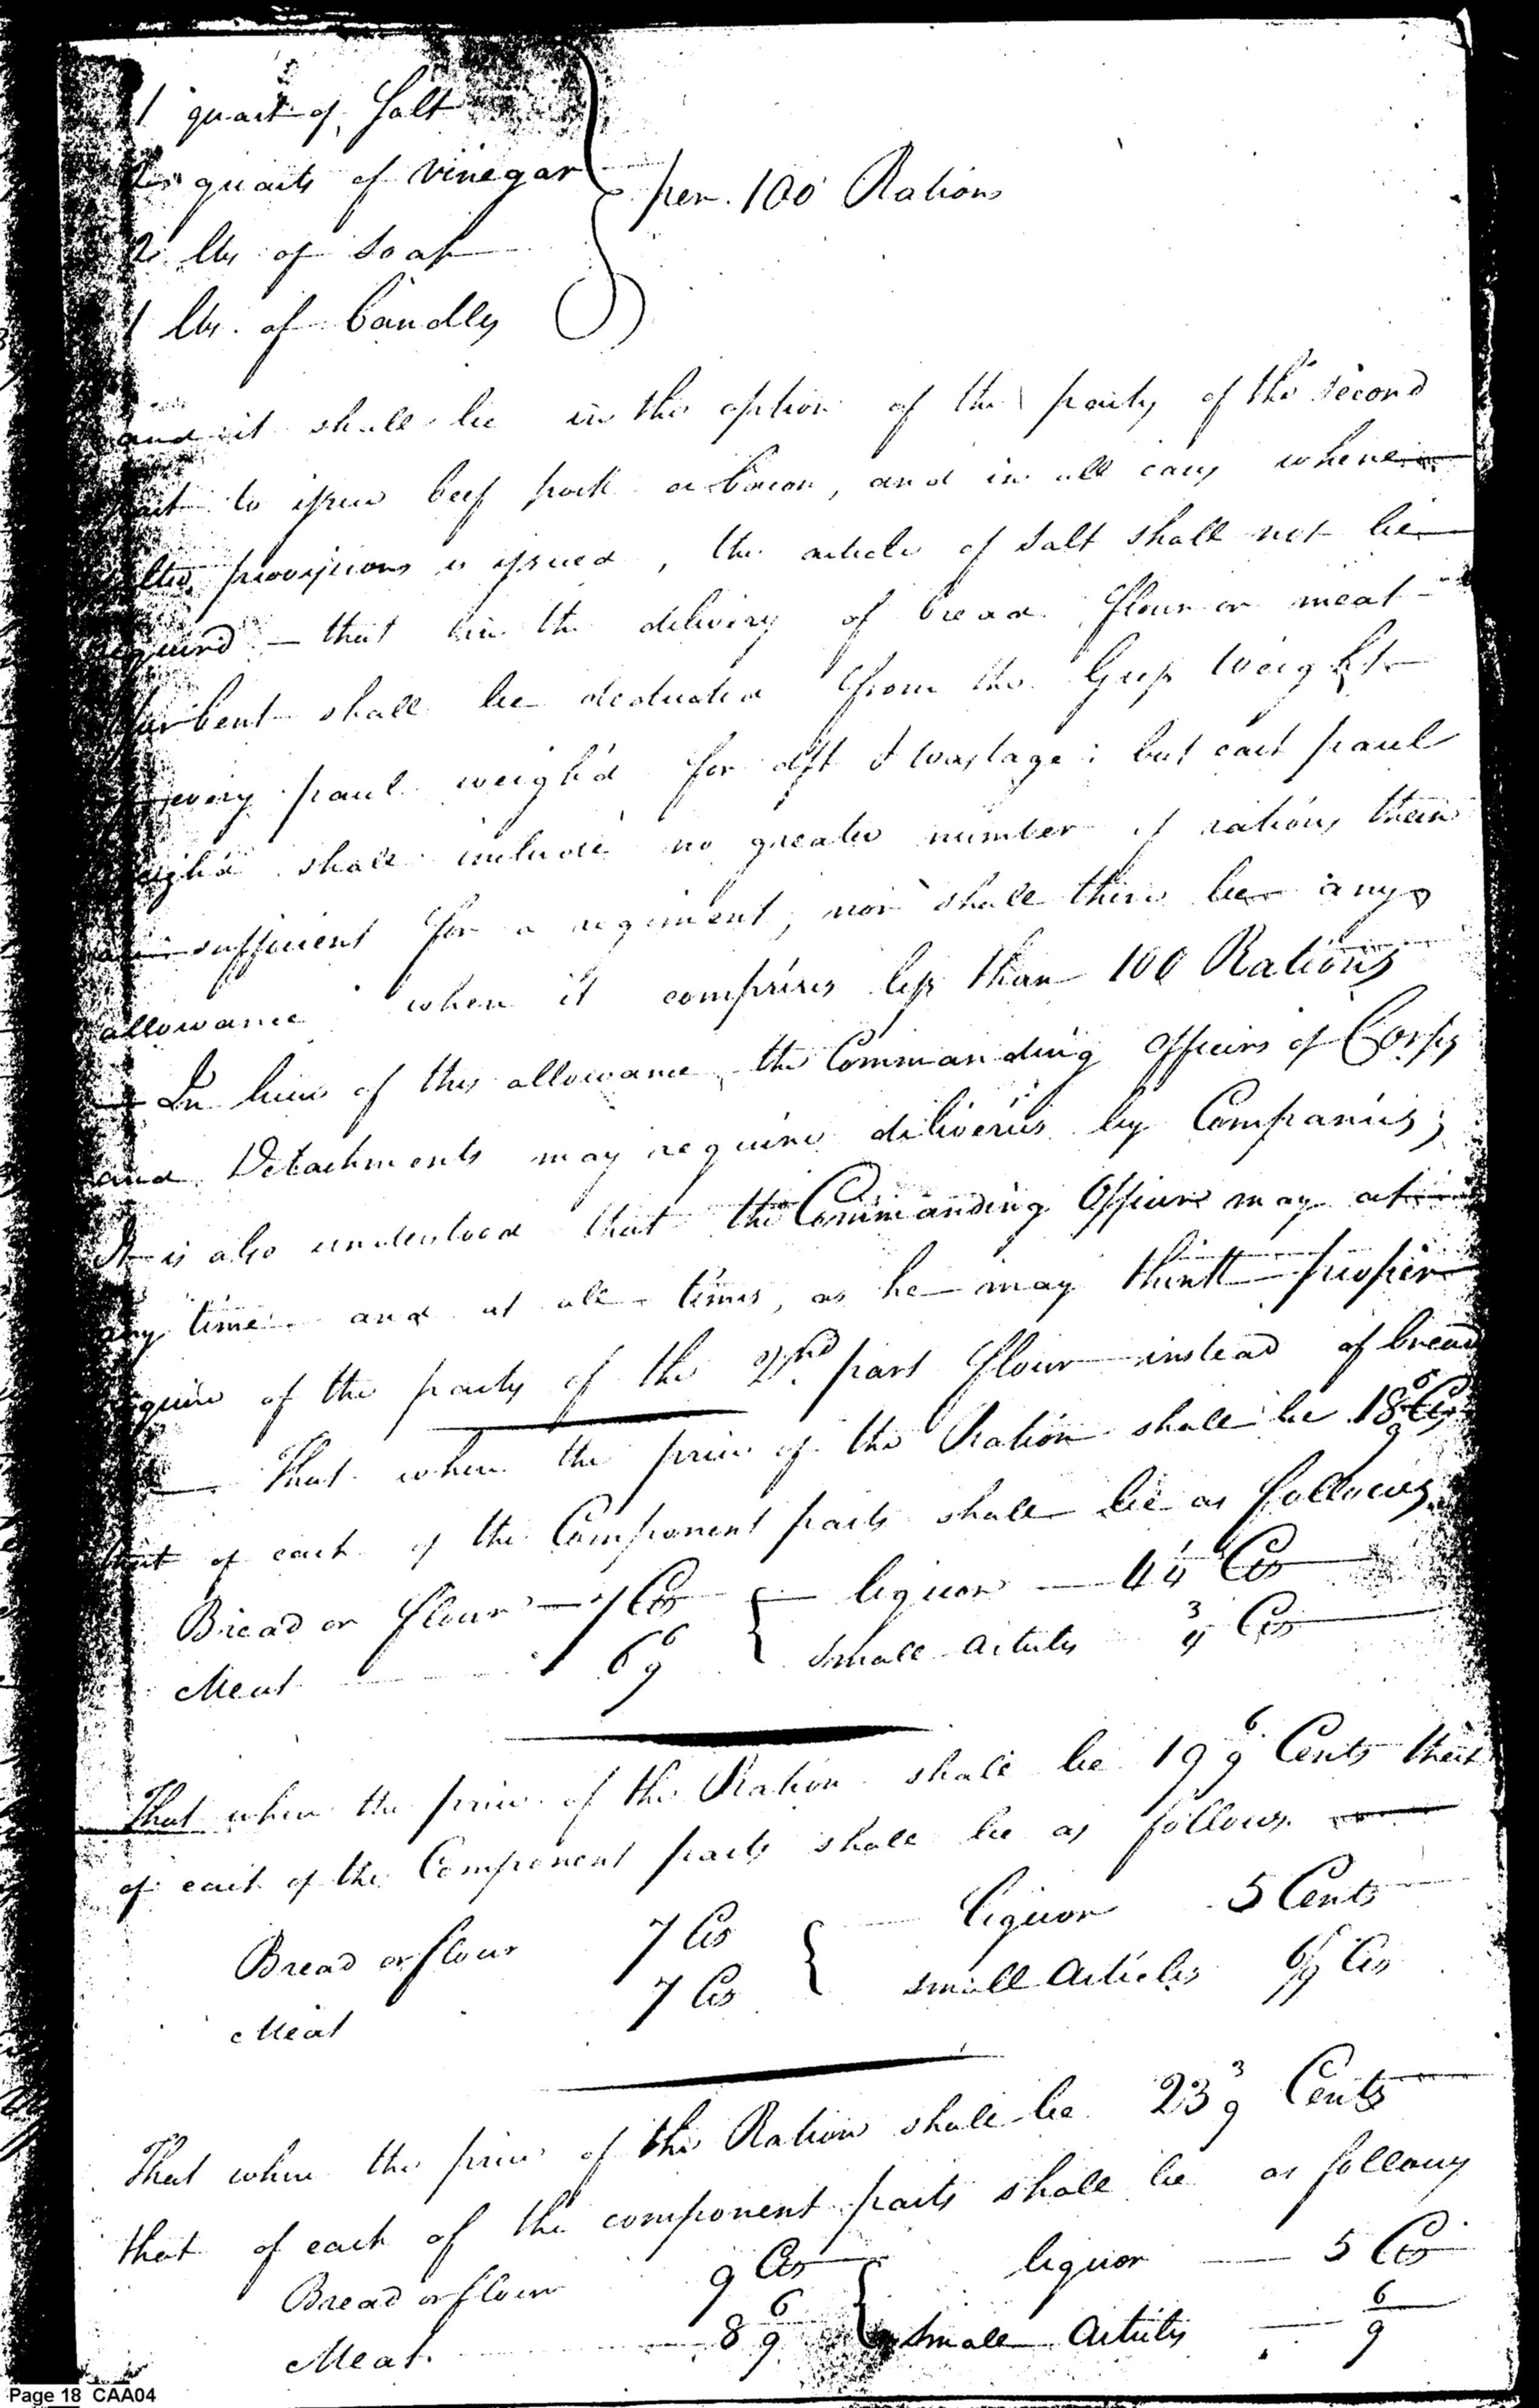 1 quart of Salt
2 quarts of vinegar
per. 100 Rations
2 lbs of Soap
1 lbs. of Candles
and it shall be in the option of the party of the second
part to issue beef pork or bacon, and in all cases where
provisions is issued, the article of Salt shall not be
required — that in the delivery of bread flour or meat
shall be deducted from the Gross Weight
every weigh'd for & wastage; but each
weigh'd shall include no greater number of rations than
sufficient for a regiment, nor shall there be any
allowance when it comprises less than 100 Rations
— In lieu of this allowance, the Commanding Officers of Corps
and Detachments may require deliveries by Companies;
It is also understood that the Commanding Officer may at
any time and at all times, as he may think proper
require of the party of the 2nd. part flour instead of bread
— That when the price of the Ration shall be 18 6/9 Cts
that of each of the Component parts shall be as follows
Bread or flour — 7 Cts { — liquor — 4 1/4 Cts
Meat 6 6/9 { Small Articles 3/4 Cts
That when the price of the Ration shall be 19 6/9 Cents that
of each of the Component parts shall be as follows.
Bread or flour 7 Cts { liquor 5 Cents
Meat 7 Cts { small Articles 6/9 Cts
That when the price of the Ration shall be 23 3/9 Cents
that of each of the component parts shall be as follows
Bread or flour 9 Cts { liquor — 5 Cts
Meat. 8 6/9 { Small Articles — 6/9
Page 18 CAA04